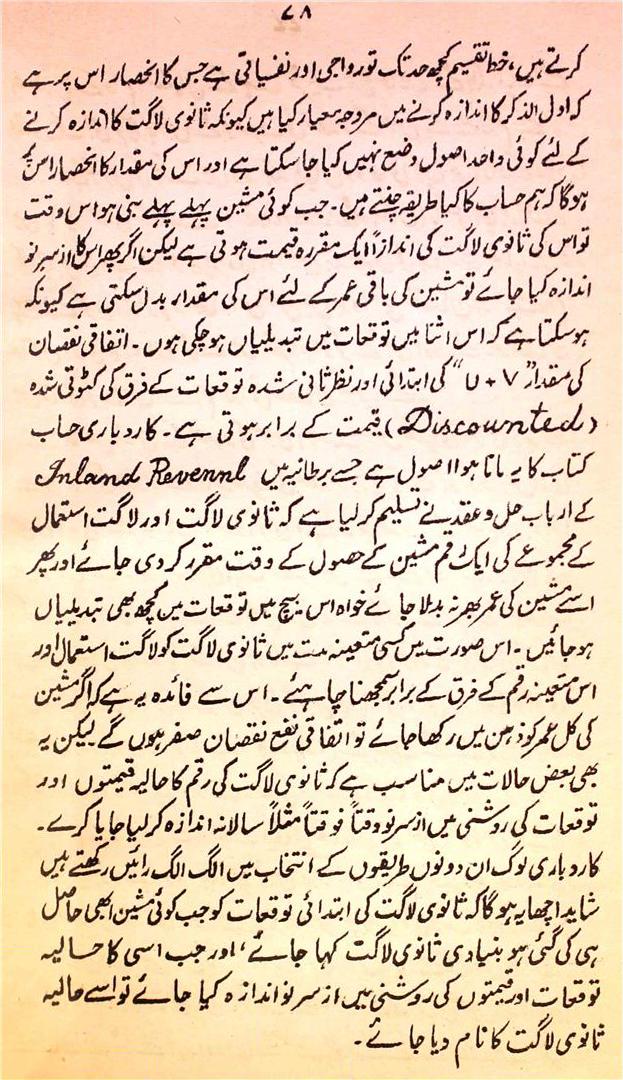 ۷۸
کرتے ہیں، خط تقسیم کچھ حد تک تو رواجی اور نفسیاتی ہے جس کا انحصار اس پر ہے
کہ اول الذکر کا اندازہ کرنے میں مروجہ معیار کیا ہیں کیونکہ ثانوی لاگت کا اندازہ کرنے
کے لئے کوئی واحد اصول وضع نہیں کیا جا سکتا ہے اور اس کی مقدار کا انحصار اس پر
ہوگا کہ ہم حساب کا کیا طریقہ چنتے ہیں۔ جب کوئی مشین پہلے پہلے بنی ہو اس وقت
تو اس کی ثانوی لاگت کی اندازاً ایک مقررہ قیمت ہوتی ہے لیکن اگر پھر اس کا ازسرنو
اندازہ کیا جائے تو مشین کی باقی عمر کے لئے اس کی مقدار بدل سکتی ہے کیونکہ
ہوسکتا ہے کہ اس اثنا میں توقعات میں تبدیلیاں ہوچکی ہوں۔ اتفاقی نقصان
کی مقدار "U + V" کی ابتدائی اور نظر ثانی شدہ توقعات کے فرق کی کٹوتی شدہ
(Discounted) قیمت کے برابر ہوتی ہے۔ کاروباری حساب
کتاب کا یہ مانا ہوا اصول ہے جسے برطانیہ میں Inland Revennl
کے ارباب حل و عقد نے تسلیم کرلیا ہے کہ ثانوی لاگت اور لاگت استعمال
کے مجموعے کی ایک رقم مشین کے حصول کے وقت مقرر کر دی جائے اور پھر
اسے مشین کی عمر بھر نہ بدلا جائے خواہ اس بیچ میں توقعات میں کچھ بھی تبدیلیاں
ہو جائیں۔ اس صورت میں کسی متعینہ مدت میں ثانوی لاگت کو لاگت استعمال اور
اس متعینہ رقم کے فرق کے برابر سمجھنا چاہئے۔ اس سے فائدہ یہ ہے کہ اگر مشین
کی کل عمر کو ذہن میں رکھا جائے تو اتفاقی نفع نقصان صفر ہوں گے لیکن یہ
بھی بعض حالات میں مناسب ہے کہ ثانوی لاگت کی رقم کا حالیہ قیمتوں اور
توقعات کی روشنی میں ازسرنو وقتاً فوقتاً مثلاً سالانہ اندازہ کرلیا جایا کرے۔
کاروباری لوگ ان دونوں طریقوں کے انتخاب میں الگ الگ رائیں رکھتے ہیں
شاید اچھا یہ ہوگا کہ ثانوی لاگت کی ابتدائی توقعات کو جب کوئی مشین ابھی حاصل
ہی کی گئی ہو بنیادی ثانوی لاگت کہا جائے، اور جب اسی کا حالیہ
توقعات اور قیمتوں کی روشنی میں ازسرنو اندازہ کیا جائے تو اسے حالیہ
ثانوی لاگت کا نام دیا جائے۔